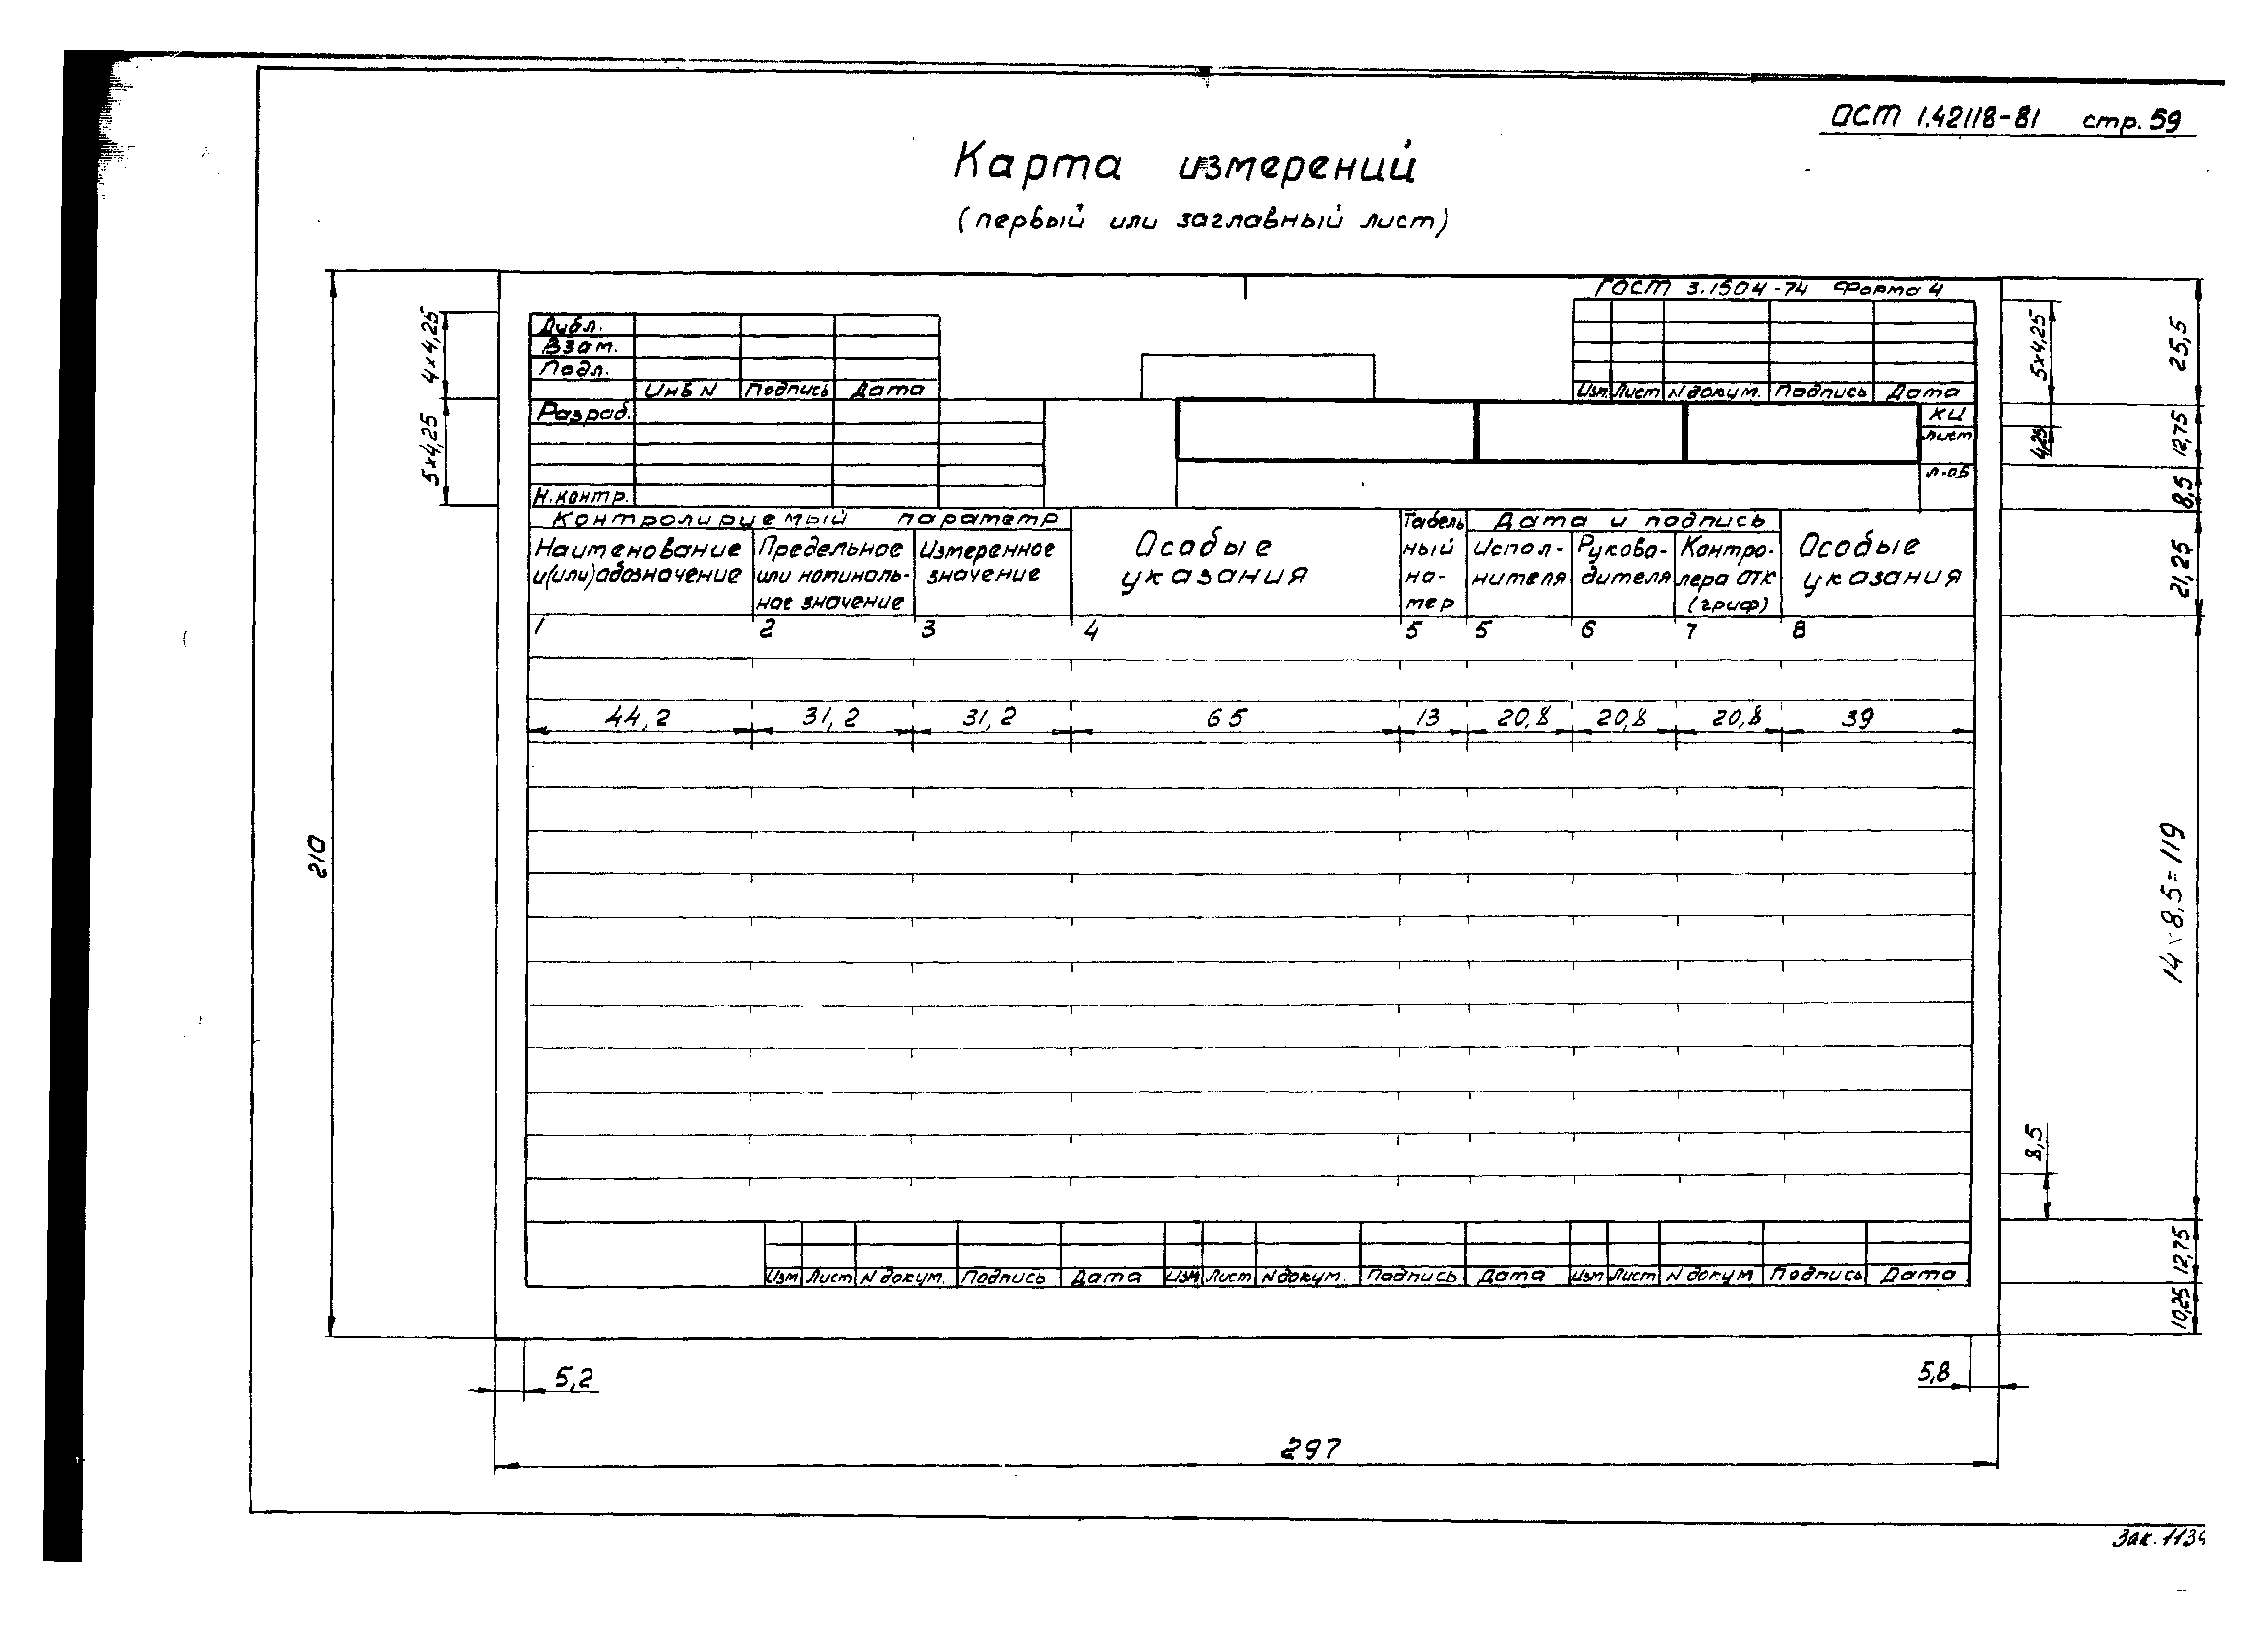 ОСТ 1.42118-81 стр. 59
Карта измерений
(первый или заглавный лист)
ГОСТ 3.1504-74 Форма 4
4×4,25
5×4,25
Дубл.
Взам.
Подл.
Инв N Подпись Дата
Изм. Лист N докум. Подпись Дата
5×4,25
25,5
Разраб.
КИ
Лист
4,25
12,75
Л-ов
8,5
Н.контр.
Контролируемый параметр
Наименование
и(или)обозначение
Предельное
или номиналь-
ное значение
Измеренное
значение
Особые
указания
Табель
ный
но-
мер
Дата и подпись
Испол-
нителя
Руково-
дителя
Контро-
лера ОТК
(гриф)
Особые
указания
21,25
1 2 3 4 5 5 6 7 8
44,2 31,2 31,2 65 13 20,8 20,8 20,8 39
210
14×8,5=119
8,5
Изм Лист N докум. Подпись Дата Изм Лист N докум. Подпись Дата Изм Лист N докум Подпись Дата
12,75
10,25
5,2
5,8
297
Зак. 1139